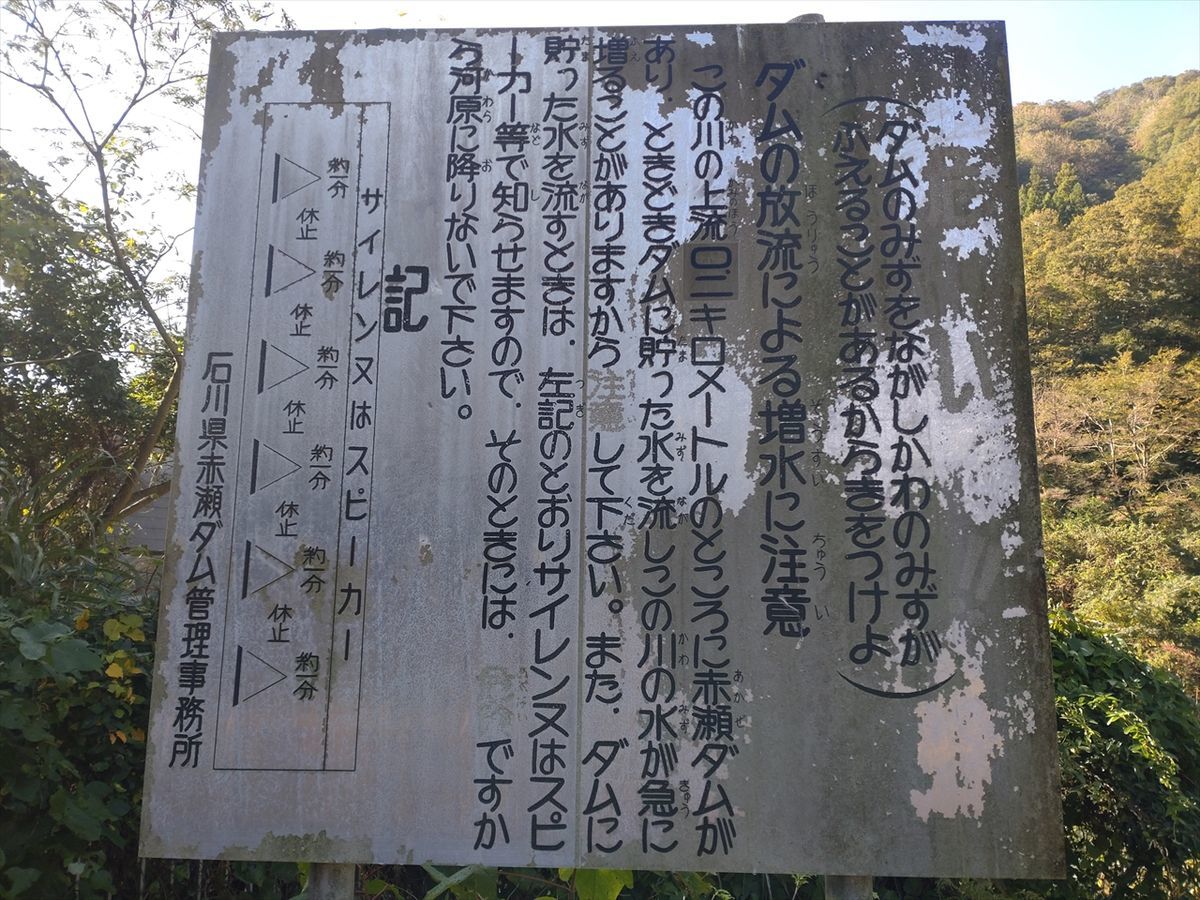 (ダムのみずをながしかわのみずが
ふえることがあるからきをつけよ)
ダムの放流による増水に注意
この川の上流〇二キロメートルのところに赤瀬ダムが
あり、ときどきダムに貯った水を流しこの川の水が急に
増ることがありますから注意して下さい。また、ダムに
貯った水を流すときは、左記のとおりサイレン又はスピ
ーカー等で知らせますので、そのときには、ですか
ら河原に降りないで下さい。
記
サイレン又はスピーカー
約一分 休止 約一分 休止 約一分 休止 約一分 休止 約一分 休止 約一分
石川県赤瀬ダム管理事務所